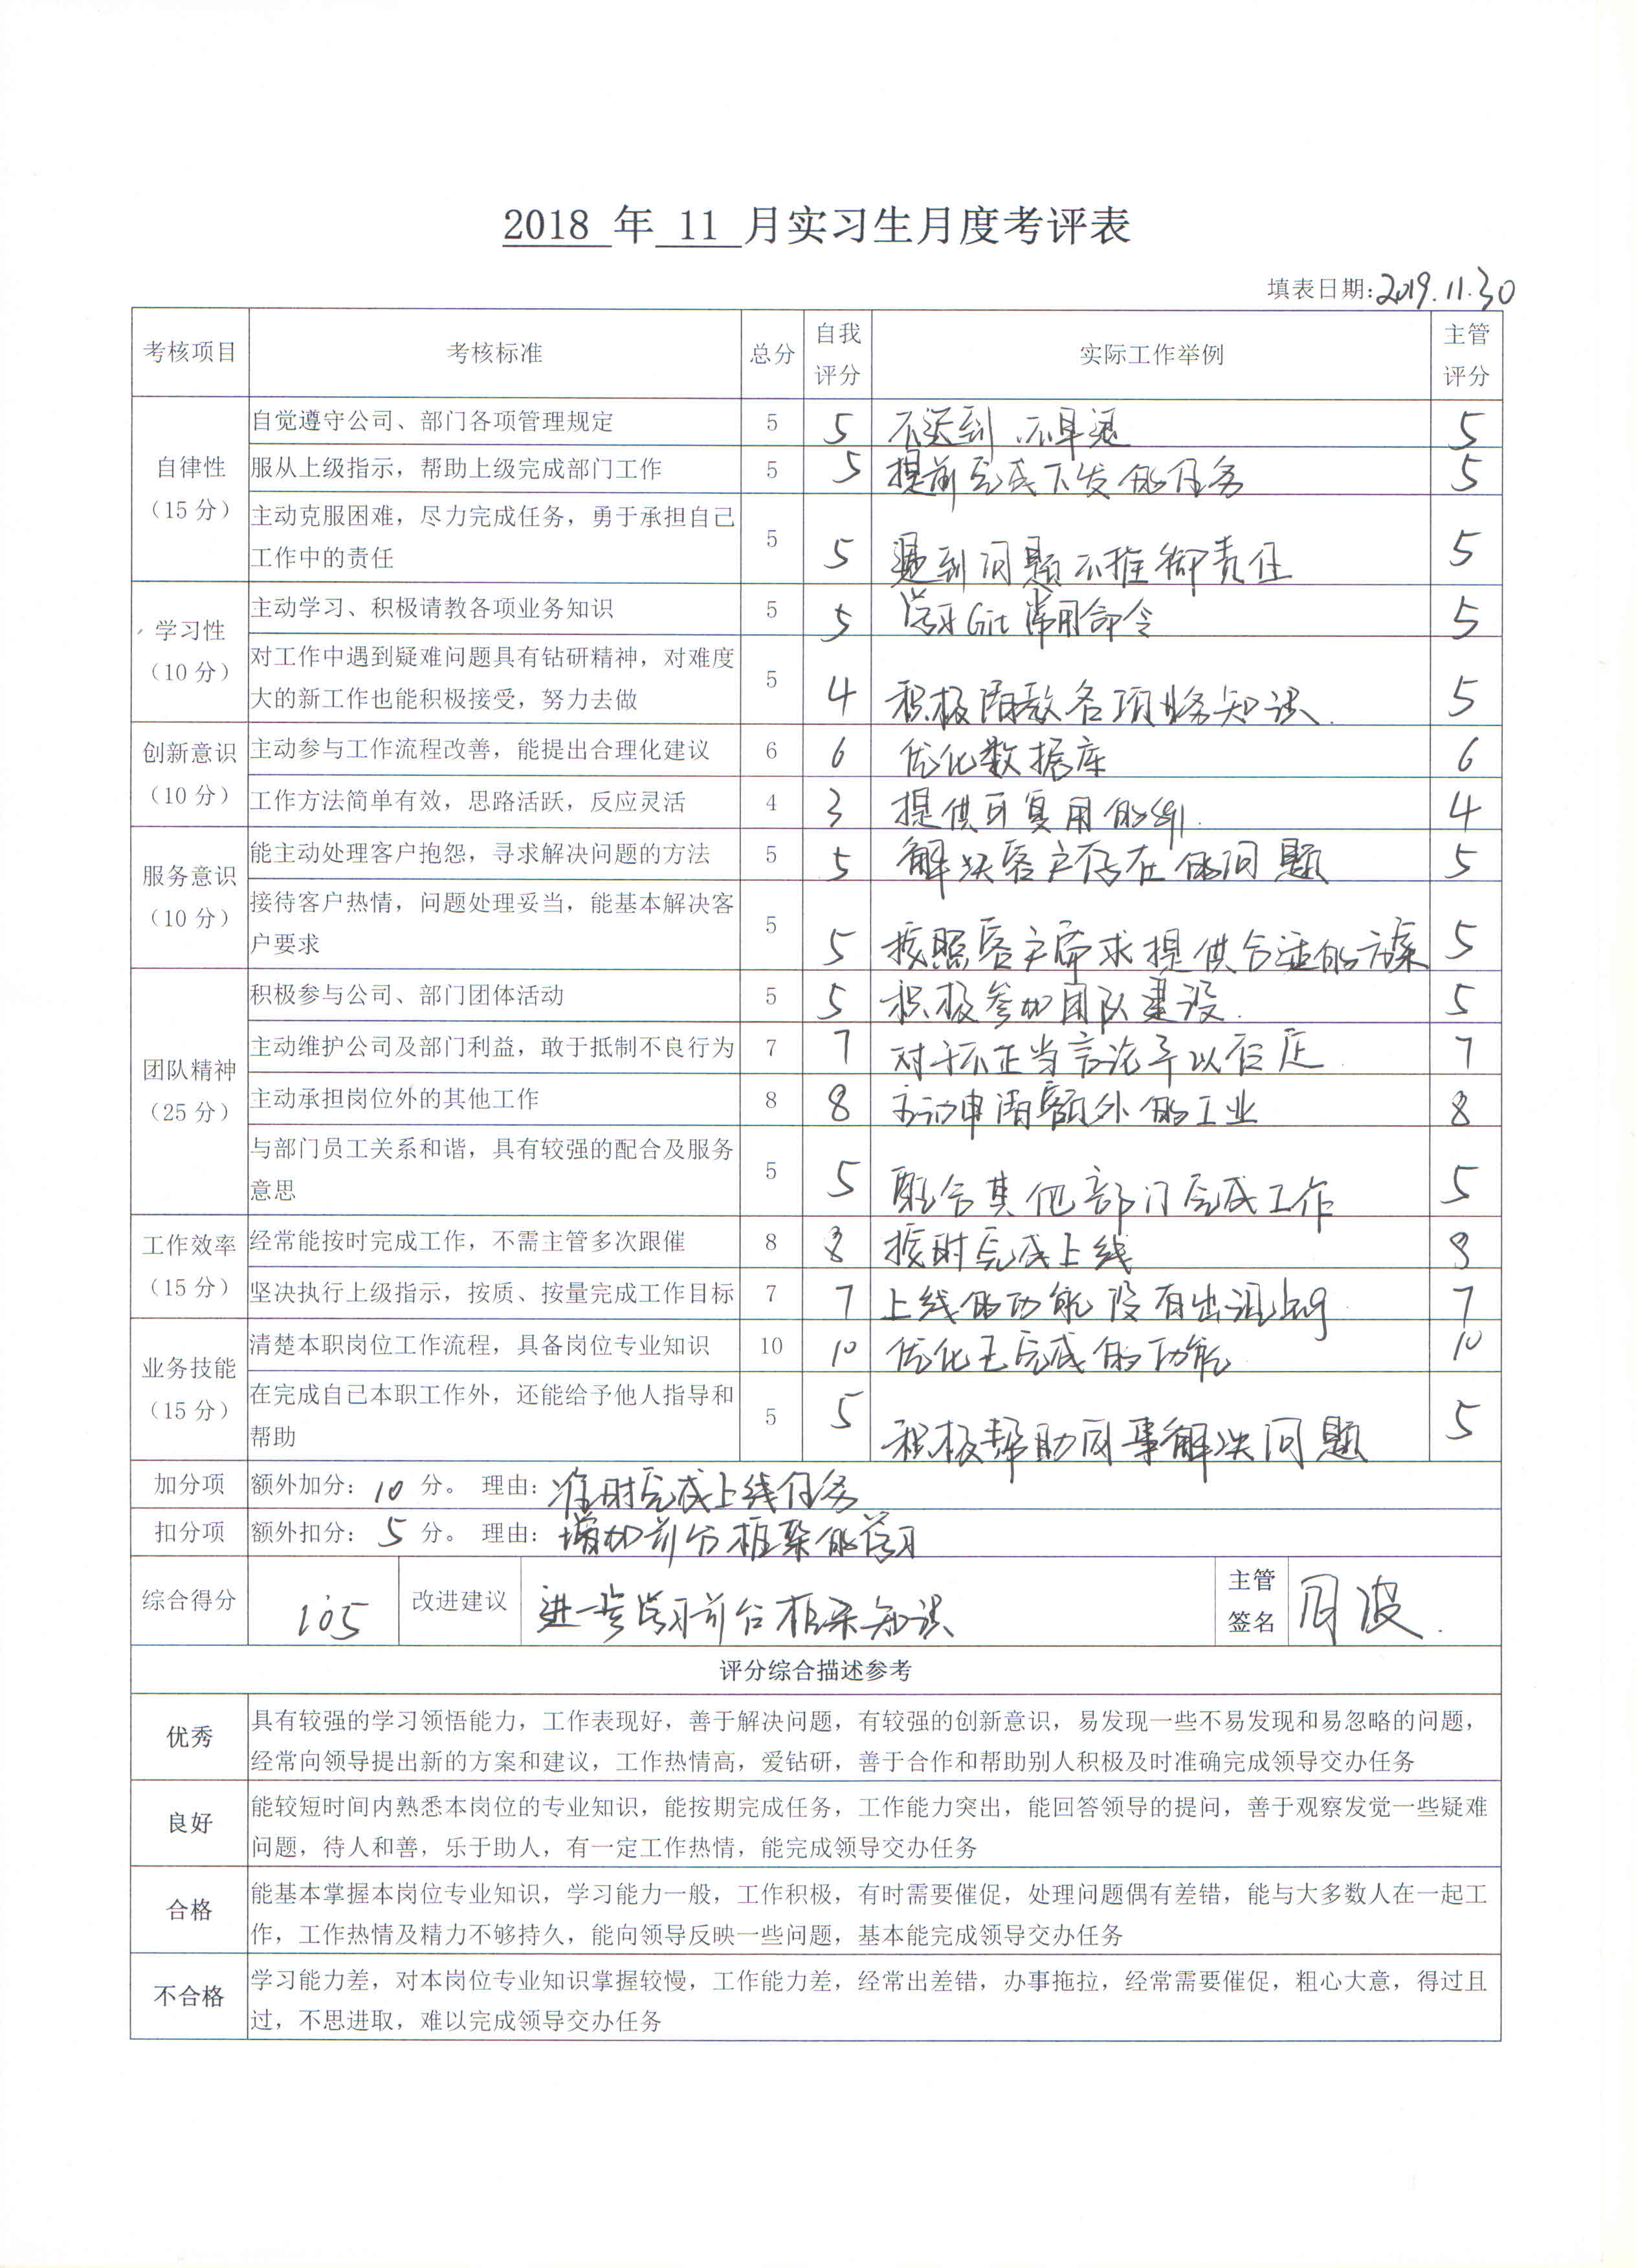 2018 年 11 月实习生月度考评表
填表日期:2019.11.30
考核项目 考核标准 总分 自我评分 实际工作举例 主管评分
自律性（15分）
自觉遵守公司、部门各项管理规定 5 5 不迟到、不早退 5
服从上级指示，帮助上级完成部门工作 5 5 提前完成下发的任务 5
主动克服困难，尽力完成任务，勇于承担自己
工作中的责任 5 5 遇到问题不推卸责任 5
学习性（10分）
主动学习、积极请教各项业务知识 5 5 学习Git常用命令 5
对工作中遇到疑难问题具有钻研精神，对难度
大的新工作也能积极接受，努力去做 5 4 积极请教各项业务知识. 5
创新意识（10分）
主动参与工作流程改善，能提出合理化建议 6 6 优化数据库 6
工作方法简单有效，思路活跃，反应灵活 4 3 提供可复用的 4
服务意识（10分）
能主动处理客户抱怨，寻求解决问题的方法 5 5 解决客户存在的问题 5
接待客户热情，问题处理妥当，能基本解决客
户要求 5 5 按照客户需求提供合适的方案 5
团队精神（25分）
积极参与公司、部门团体活动 5 5 积极参加团队建设. 5
主动维护公司及部门利益，敢于抵制不良行为 7 7 对于不正当言论予以否定 7
主动承担岗位外的其他工作 8 8 主动申请额外的工业 8
与部门员工关系和谐，具有较强的配合及服务
意思 5 5 配合其他部门完成工作 5
工作效率（15分）
经常能按时完成工作，不需主管多次跟催 8 8 按时完成上线 8
坚决执行上级指示，按质、按量完成工作目标 7 7 上线的功能没有出现bug 7
业务技能（15分）
清楚本职岗位工作流程，具备岗位专业知识 10 10 优化已完成的功能 10
在完成自己本职工作外，还能给予他人指导和
帮助 5 5 积极帮助同事解决问题 5
加分项 额外加分：10 分。 理由：准时完成上线任务
扣分项 额外扣分：5 分。 理由：增加前台框架的学习
综合得分 105 改进建议 进一步学习前台框架知识 主管签名 周波.
评分综合描述参考
优秀
具有较强的学习领悟能力，工作表现好，善于解决问题，有较强的创新意识，易发现一些不易发现和易忽略的问题，
经常向领导提出新的方案和建议，工作热情高，爱钻研，善于合作和帮助别人积极及时准确完成领导交办任务
良好
能较短时间内熟悉本岗位的专业知识，能按期完成任务，工作能力突出，能回答领导的提问，善于观察发觉一些疑难
问题，待人和善，乐于助人，有一定工作热情，能完成领导交办任务
合格
能基本掌握本岗位专业知识，学习能力一般，工作积极，有时需要催促，处理问题偶有差错，能与大多数人在一起工
作，工作热情及精力不够持久，能向领导反映一些问题，基本能完成领导交办任务
不合格
学习能力差，对本岗位专业知识掌握较慢，工作能力差，经常出差错，办事拖拉，经常需要催促，粗心大意，得过且
过，不思进取，难以完成领导交办任务